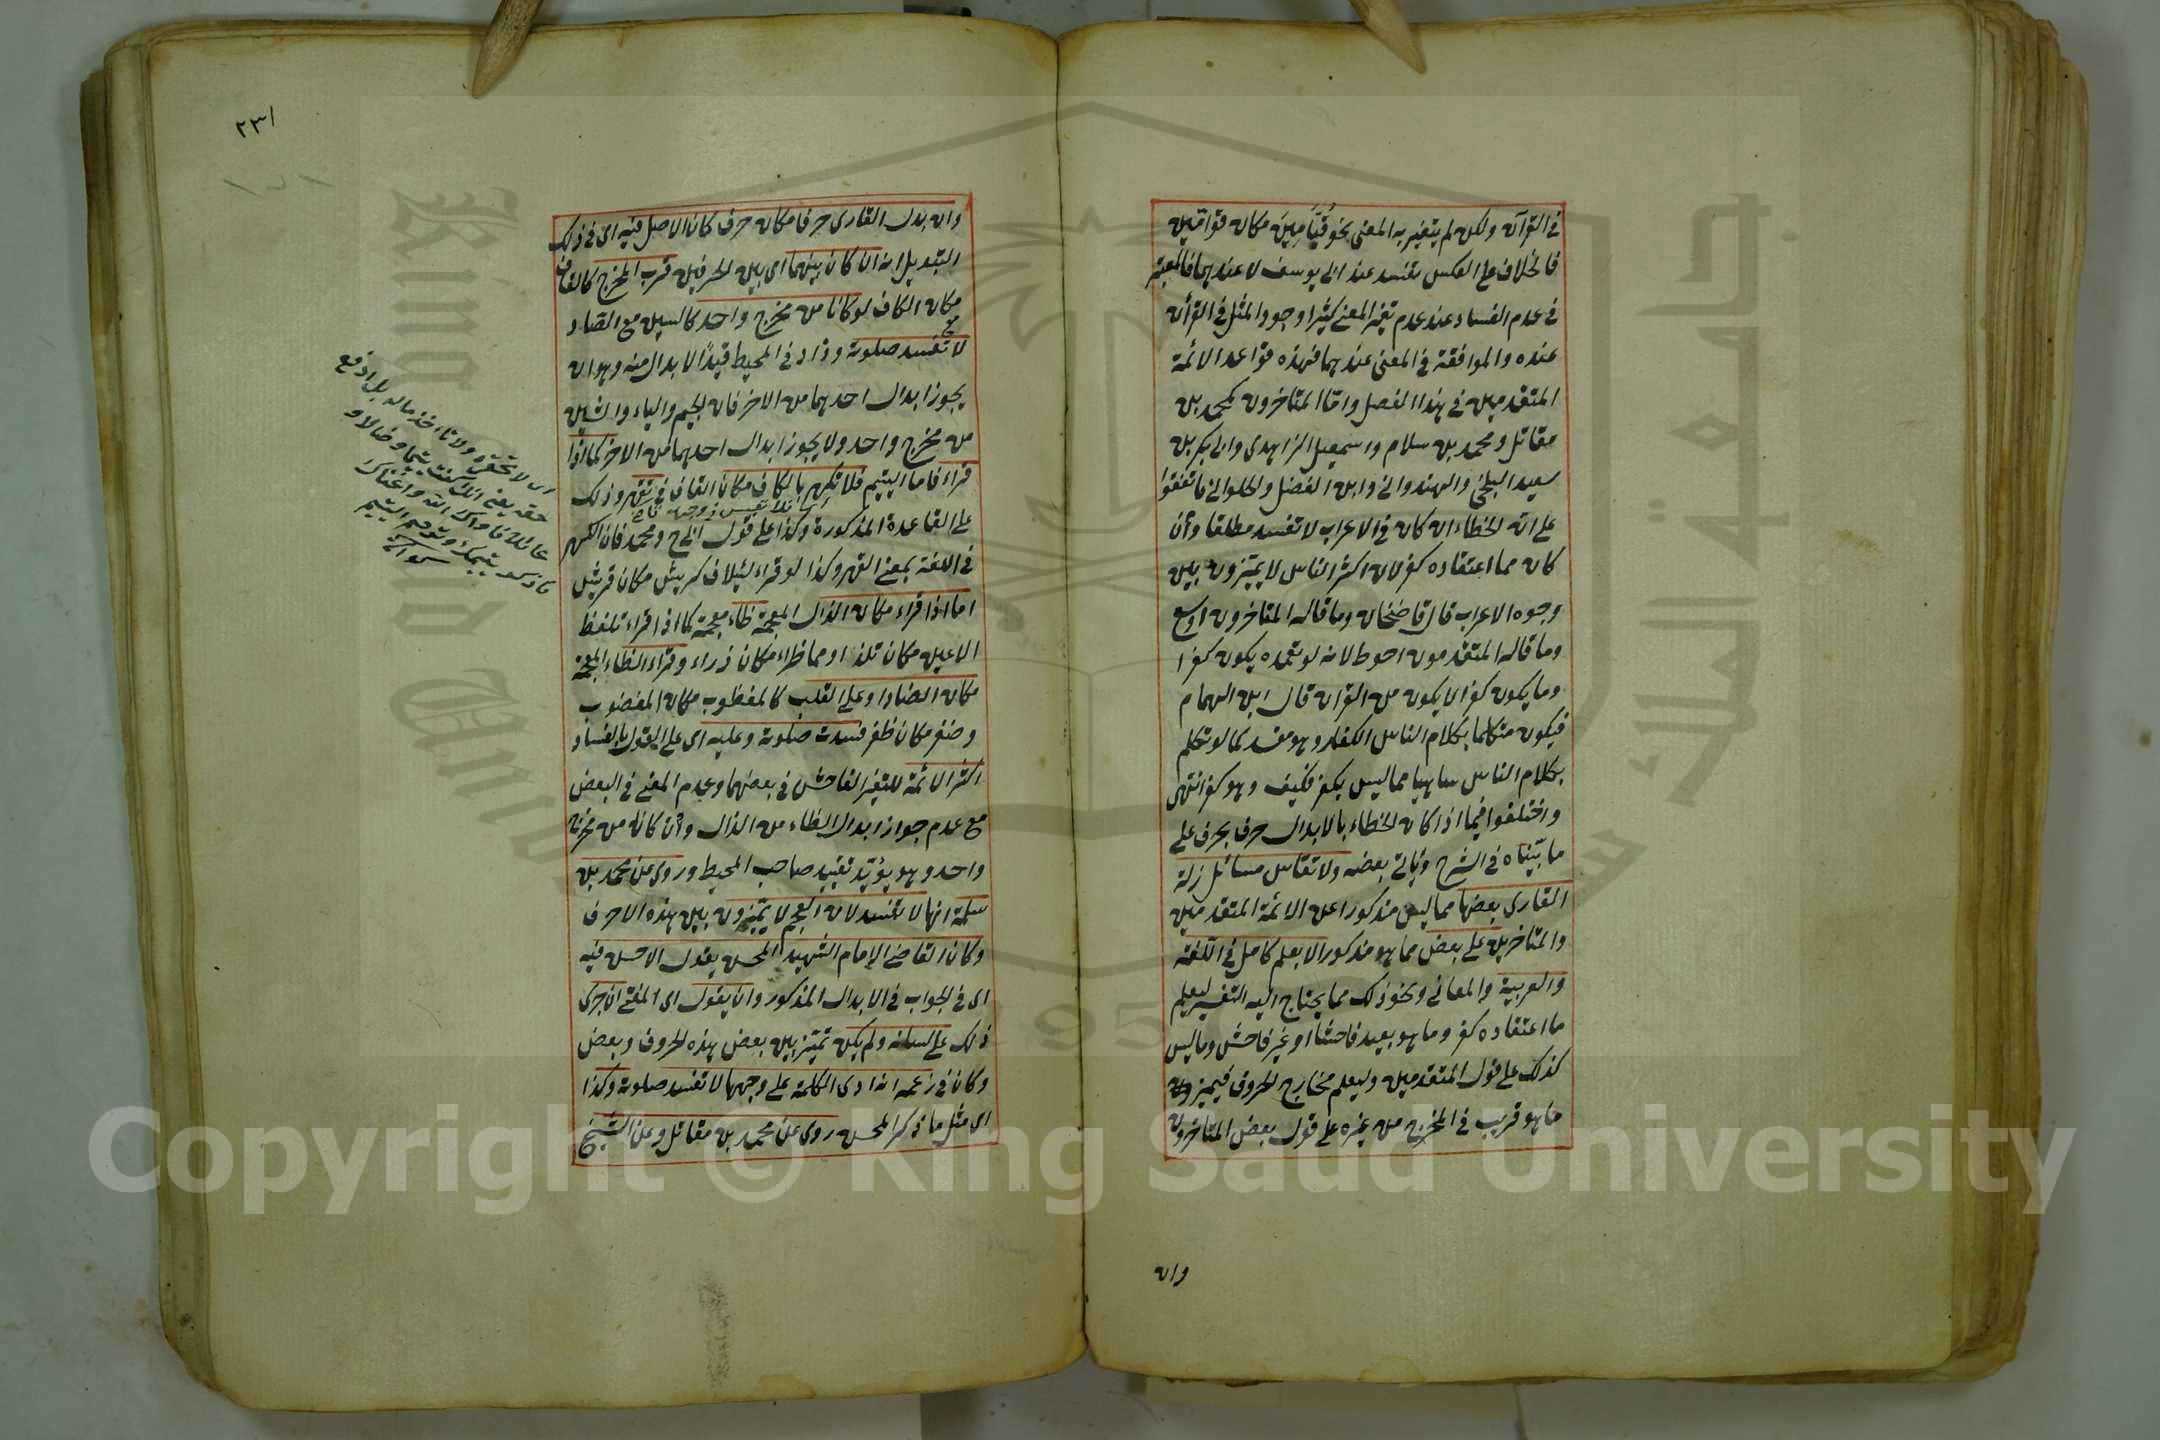 في القرآن ولكن لم يتغير به المعنى نحو قيامين مكان قوامين
فالخلاف على العكس تفسد عند ابي يوسف لا عندهما فالمعتبر
في عدم الفساد عند عدم تغير المعنى كثيرا وجود المثل في القرآن
عنده والموافقة في المعنى عندهما فهذه قواعد الائمة
المتقدمين في هذا الفصل واما المتاخرون كمحمد بن
مقاتل ومحمد بن سلام واسمعيل الزاهدي وابي بكر بن
سعيد البلخي والهندواني وابن الفضل والحلواني فاتفقوا
على ان الخطاء ان كان في الاعراب لا تفسد مطلقا وان
كان مما اعتقاده كفر لان اكثر الناس لا يميزون بين
وجوه الاعراب قال قاضيخان وما قاله المتاخرون اوسع
وما قاله المتقدمون احوط لانه لو تعمده يكون كفرا
وما يكون كفرا لا يكون من القران قال ابن الهمام
فيكون متكلما بكلام الناس الكفار وهو مفسد كما لو تكلم
بكلام الناس ساهيا مما ليس بكفر فكيف وهو كفر انتهى
واختلفوا فيما اذا كان الخطاء بالابدال حرف بحرف على
ما بيناه في الشرح وياتي بعضه ولا تقاس مسائل زلة
القاري بعضها مما ليس مذكورا عن الائمة المتقدمين
والمتاخرين على بعض مما هو مذكور الا بعلم كامل في اللغة
والعربية والمعاني ونحو ذلك مما يحتاج اليه التفسير ليعلم
ما اعتقاده كفر وما هو بعيد فاحشا او غير فاحش وما ليس
كذلك على قول المتقدمين وليعلم مخارج الحروف فيميز
ما هو قريب في المخرج من غيره على قول بعض المتاخرون
وان
٢٣١
وان بدل القاري حرفا مكان حرف كان الاصل فيه اى في ذلك
التبديل انه ان كان بينهما اى بين الحرفين قرب المخرج كالقاف
مكان الكاف لو كانا من مخرج واحد كالسين مع الصاد
لا تفسد صلوته وزاد في المحيط قيدا لا بدال منه وهو ان
يجوز ابدال احدهما من الاخر فان الجيم والياء والشين
من مخرج واحد ولا يجوز ابدال احدهما من الاخر كما اذا
قراء فاما اليتيم فلا تكهر بالكاف مكان القاف في تقهر وذلك
على القاعدة المذكورة وكذا على قول ابي ح ومحمد فان الكهر
في اللغة بمعنى القهر وكذا لو قراء لئيلاف كريش مكان قريش
اما اذا قراء مكان الذال المعجمة ظاء معجمة كما اذا قراء تلظ
الاعين مكان تلذ او مما ظراء مكان ذراء وقراء الظاء المعجمة
مكان الضاد او على القلب كالمغظوب مكان المغضوب
وضفر مكان ظفر فسدت صلوته وعليه اى على القول بالفساد
اكثر الائمة للتغير الفاحش في بعضها وعدم المعنى في البعض
مع عدم جواز ابدال الظاء من الذال وان كانه من مخرج
واحد وهو يؤيد تقييد صاحب المحيط وروى عن محمد بن
سلمة انها لا تفسد لان العجم لا يميزون بين هذه الاحرف
وكان القاضي الإمام الشهيد المحسن يقول الاحسن فيه
اى في الجواب في الابدال المذكور وان يقول اى المفتي ان جرى
ذلك على لسانه ولم يكن تمييز بين بعض هذه الحروف وبعض
وكان في زعمه انه ادى الكلمة على وجهها لا تفسد صلوته وكذا
اى مثل ما ذكر المحسن روى عن محمد بن مقاتل وعن الشيخ
Copyright © King Saud University